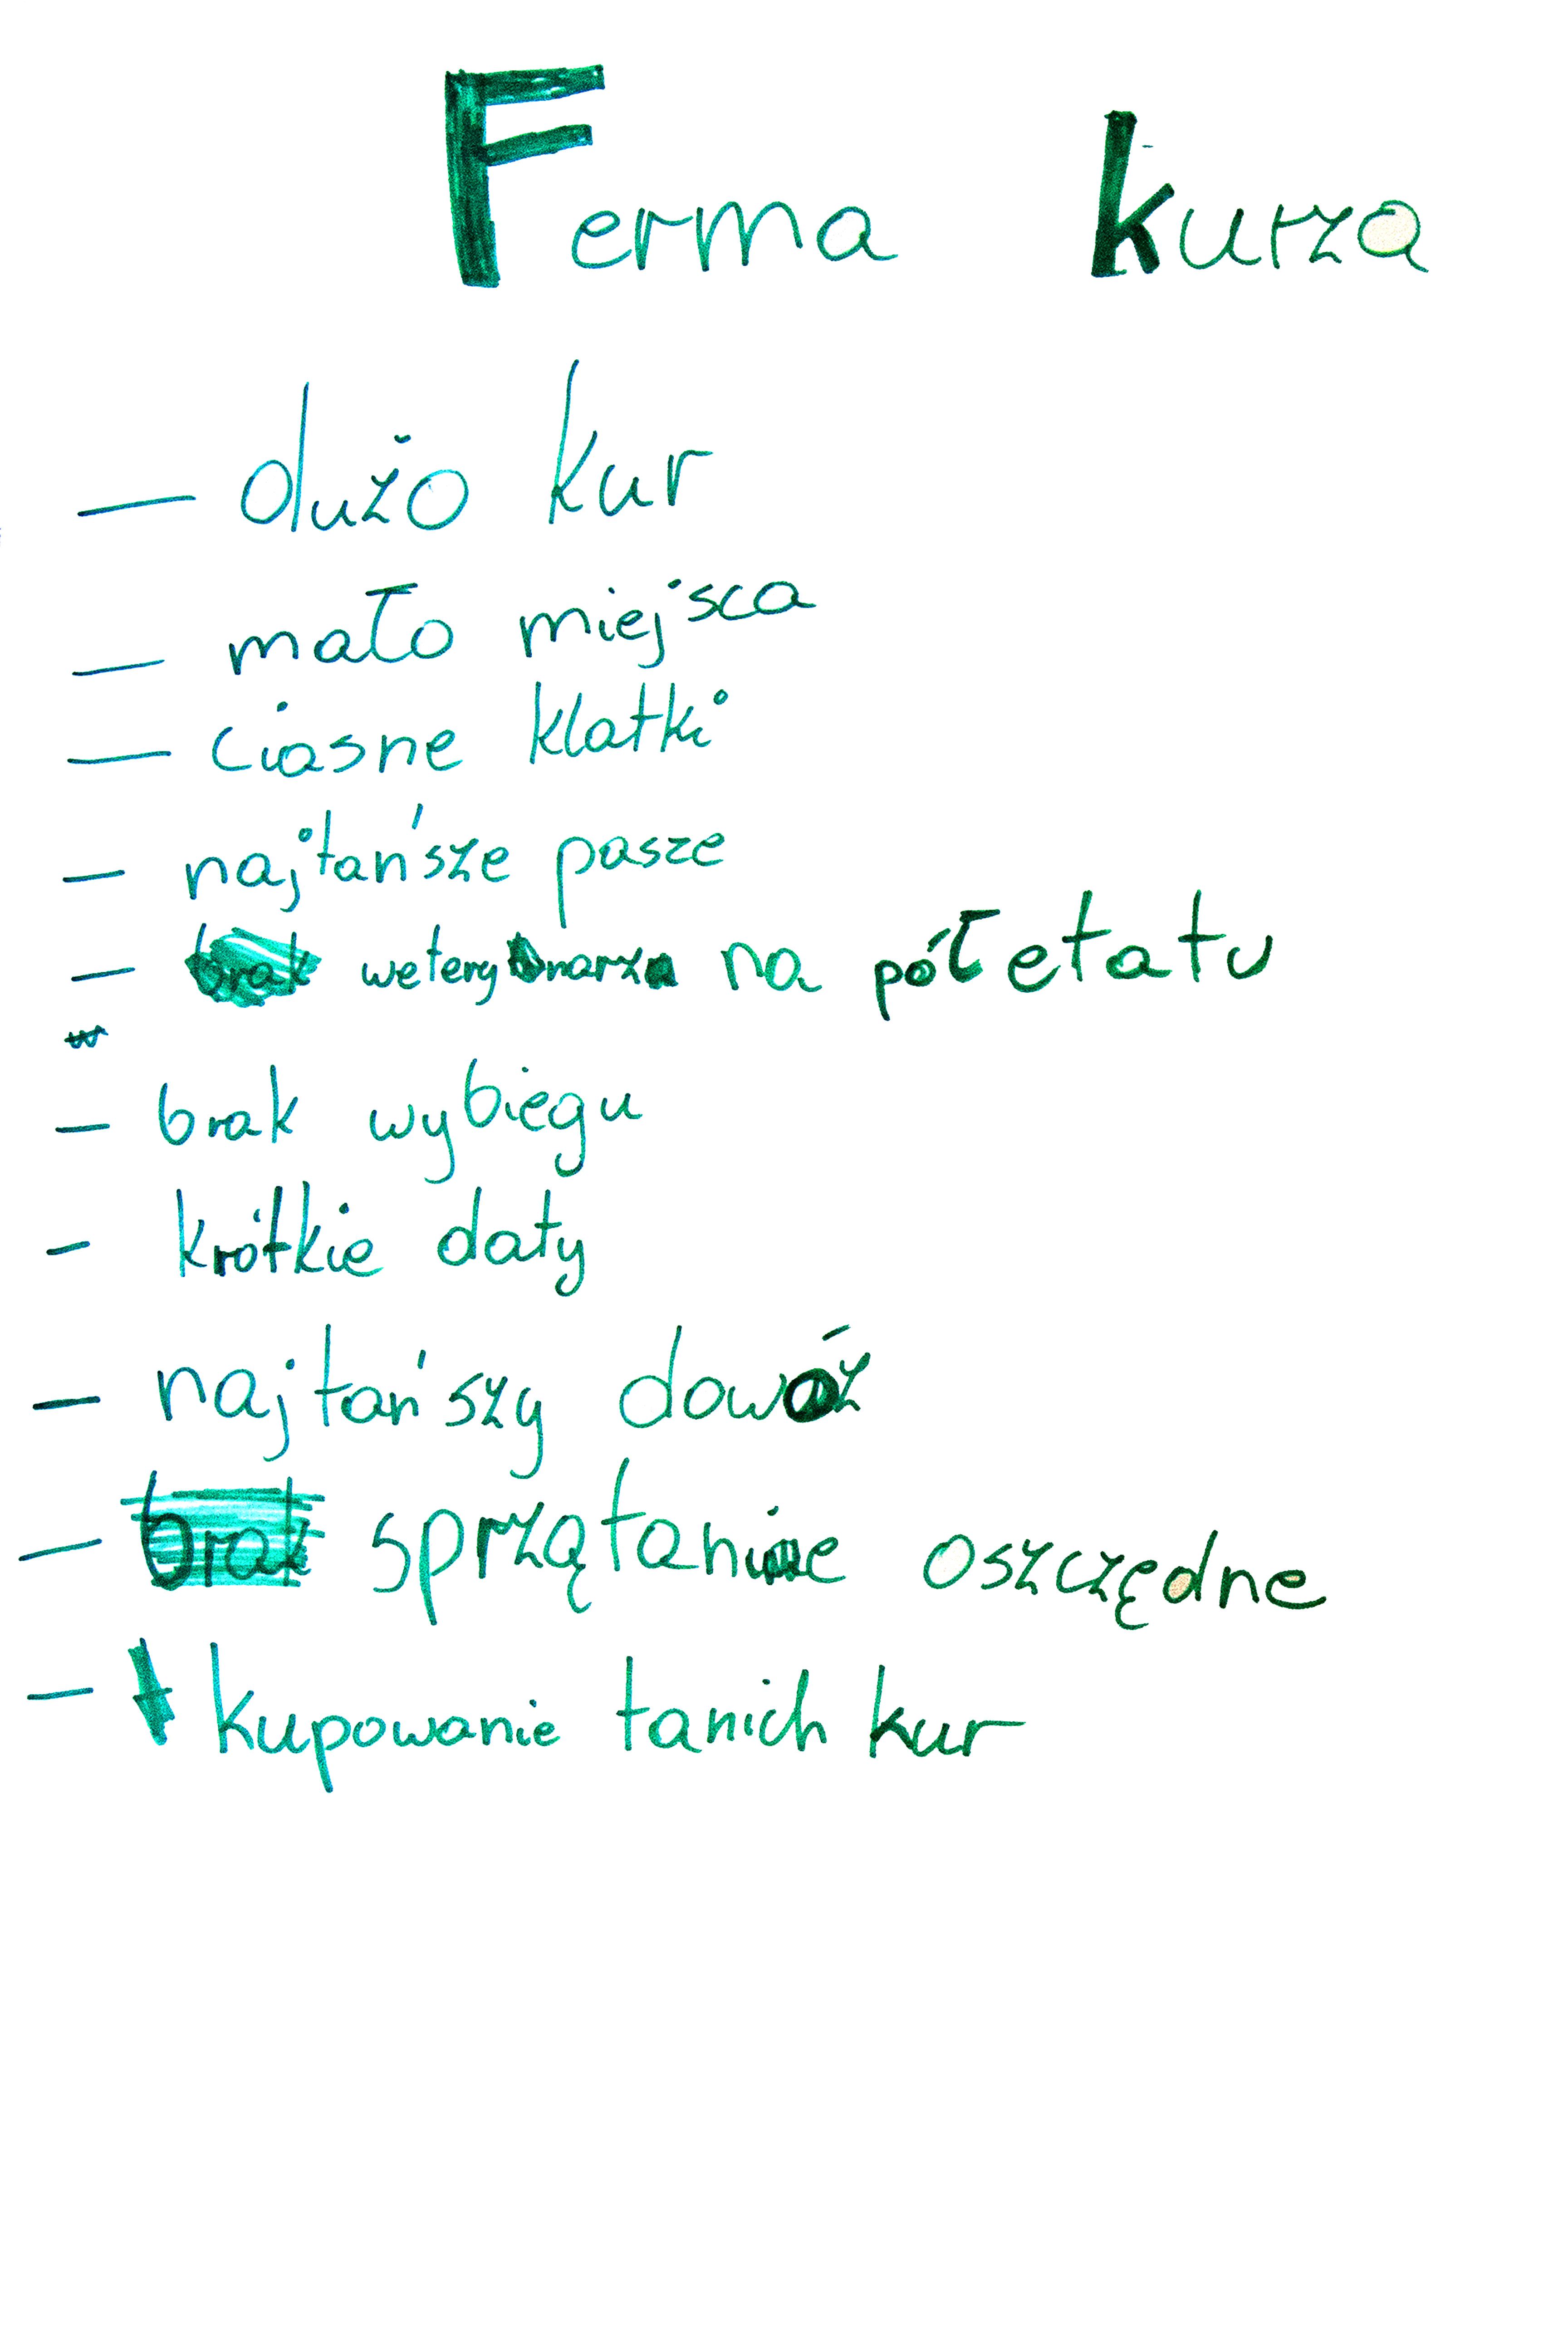 Ferma kurza
— dużo kur
— mało miejsca
— ciasne klatki
— najtańsze pasze
— weterynarz na pół etatu
— brak wybiegu
— krótkie daty
— najtańszy dowóz
— sprzątanie oszczędne
— kupowanie tanich kur